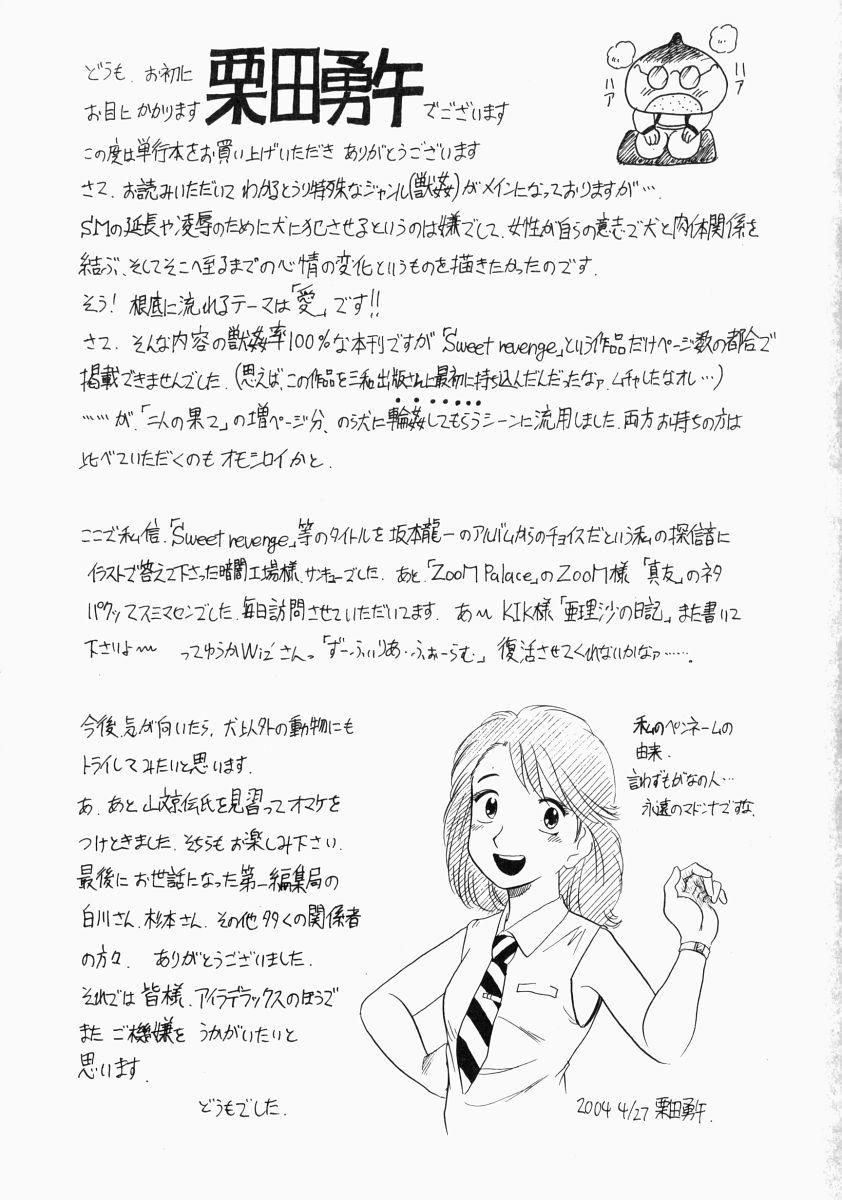 どうも、お初に
お目にかかります 栗田勇午 でございます
ハア
ハア
この度は単行本をお買い上げいただき ありがとうございます
さて、お読みいただいて わかるとうり特殊なジャンル(獣姦)がメインになっておりますが…。
SMの延長や凌辱のために犬に犯させるというのは嫌でして、女性が自らの意志で犬と肉体関係を
結ぶ、そしてそこへ至るまでの心情の変化というものを描きたかったのです。
そう! 根底に流れるテーマは「愛」です!!
さて、そんな内容の獣姦率100%な本刊ですが「Sweet revenge」という作品だけページ数の都合で
掲載できませんでした。(思えば、この作品を三和出版さんに最初に持ち込んだんだったなァ、ムチャしたなオレ…)
……が、「二人の果て」の増ページ分、のら犬に輪姦してもらうシーンに流用しました。両方お持ちの方は
比べていただくのもオモシロイかと。
ここで私信、「Sweet revenge」等のタイトルを坂本龍一のアルバムからのチョイスだという私の探信音に
イラストで答えて下さった暗闇工場様、サンキューでした。あと、「ZooM Palace」のZooM様 「真友」のネタ
パクッてスミマセンでした、毎日訪問させていただいてます。 あ〜 KIK様「亜理沙の日記」また書いて
下さいよ〜 ってゆうかWiz'さんっ「ずーふぃりあ・ふぉーらむ」復活させてくれないかなァ……。
今後、気が向いたら、犬以外の動物にも
トライしてみたいと思います。
あ、あと山文京伝氏を見習ってオマケを
つけときました。そちらもお楽しみ下さい。
最後にお世話になった第一編集局の
白川さん、杉本さん、その他多くの関係者
の方々、 ありがとうございました。
それでは皆様、アイラデラックスのほうで
また ご機嫌を うかがいたいと
思います。
どうもでした。
私のペンネームの
由来。
言わずもがなの人…
永遠のマドンナですな
2004 4/27 栗田勇午.